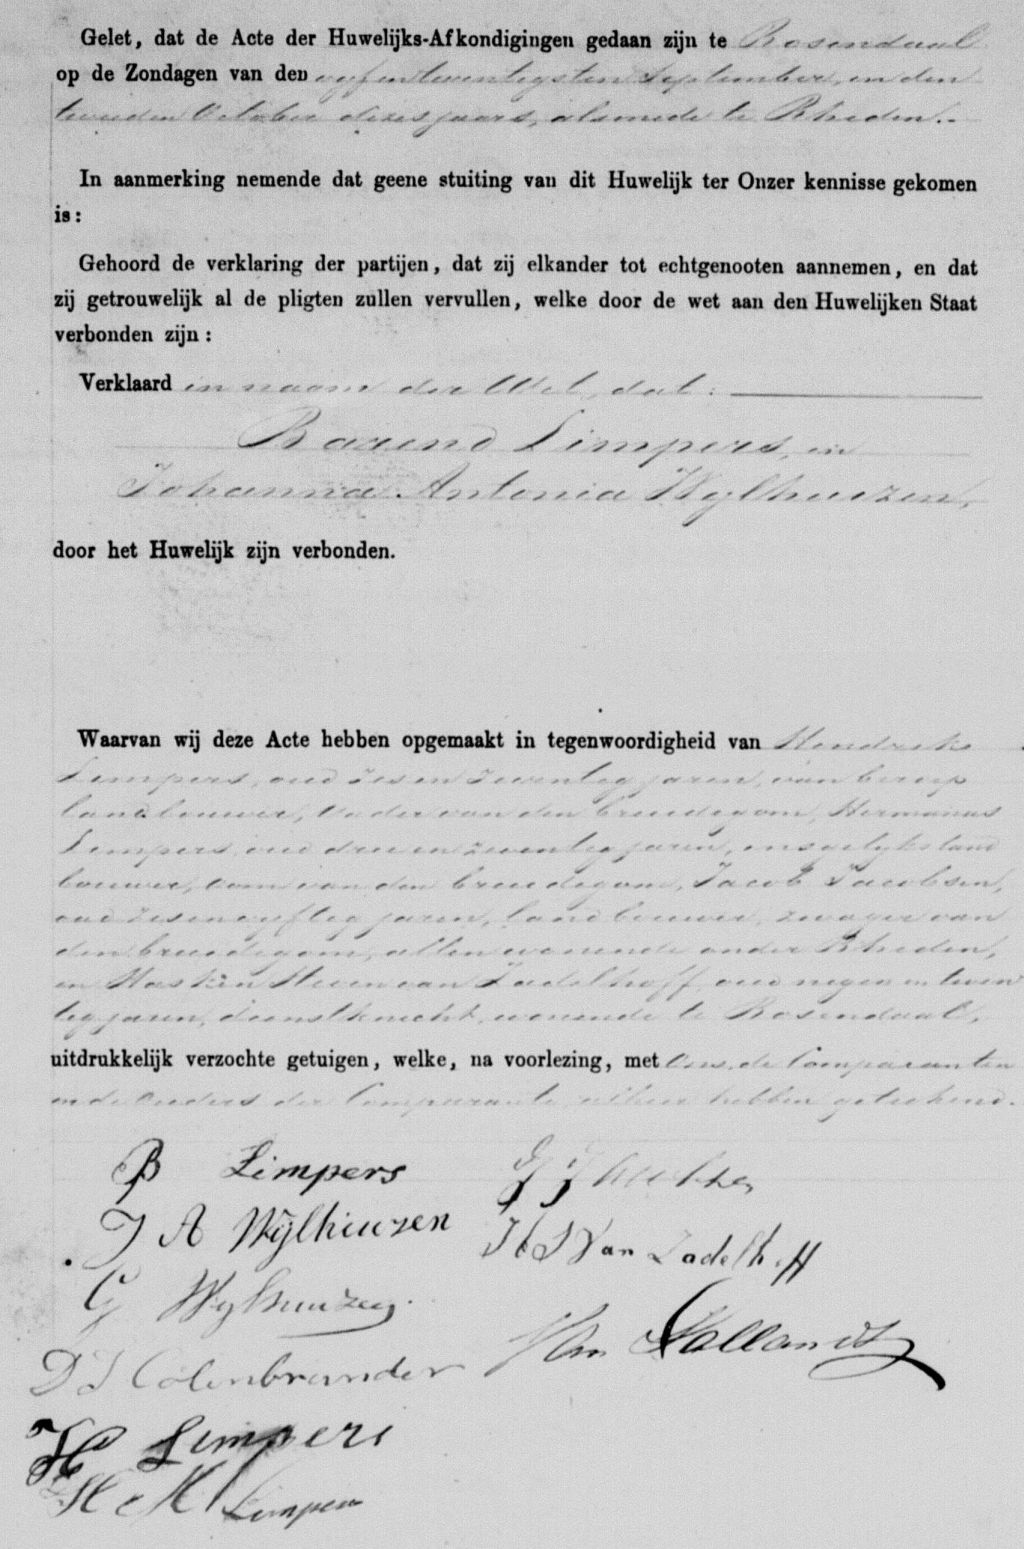 Gelet, dat de Acte der Huwelijks-Afkondigingen gedaan zijn te Rosendaal
op de Zondagen van den vyfentwentigsten September, en den
tweeden October dezes jaars, alsmede te Rheden.
In aanmerking nemende dat geene stuiting van dit Huwelijk ter Onzer kennisse gekomen
is:
Gehoord de verklaring der partijen, dat zij elkander tot echtgenooten aannemen, en dat
zij getrouwelijk al de pligten zullen vervullen, welke door de wet aan den Huwelijken Staat
verbonden zijn:
Verklaard in naam der Wet, dat:
Barend Limpers, en
Johanna Antonia Wylhuizen,
door het Huwelijk zijn verbonden.
Waarvan wij deze Acte hebben opgemaakt in tegenwoordigheid van Hendrik
Limpers, oud zesenzeventig jaren, van beroep
landbouwer, Vader van den bruidegom, Hermanus
Limpers, oud drieenzeventig jaren, insgelyks land
bouwer, oom van den bruidegom, Jacob Jacobsen,
oud zesenvyftig jaren, landbouwer, zwager van
den bruidegom, allen wonende onder Rheden,
en van Zadelhoff, oud negen en twin
tig jaren, dienstknecht, wonende te Rosendaal,
uitdrukkelijk verzochte getuigen, welke, na voorlezing, met Ons, de Comparanten
en de Ouders der Comparante, alhier hebben getekend.
B Limpers
J A Wylhuizen
van Zadelhoff
G Wylhuizen
D J Colenbrander
H Limpers
H M Limpers